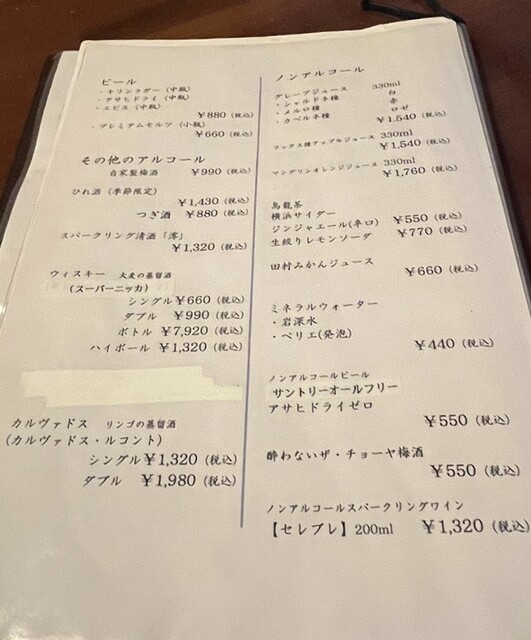 ビール
・キリンラガー（中瓶）
・アサヒドライ（中瓶）
・エビス（中瓶）
￥880（税込）
・プレミアムモルツ（小瓶）
￥660（税込）
その他のアルコール
自家製梅酒 ￥990（税込）
ひれ酒（季節限定）
￥1,430（税込）
つぎ酒 ￥880（税込）
スパークリング清酒「澪」
￥1,320（税込）
ウィスキー 大麦の蒸留酒
（スーパーニッカ）
シングル￥660（税込）
ダブル ￥990（税込）
ボトル ￥7,920（税込）
ハイボール ￥1,320（税込）
カルヴァドス リンゴの蒸留酒
（カルヴァドス・ルコント）
シングル￥1,320（税込）
ダブル ￥1,980（税込）
ノンアルコール
グレープジュース 330ml
・シャルドネ種 白
・メルロ種 赤
・カベルネ種 ロゼ
￥1,540（税込）
コックス種アップルジュース 330ml
￥1,540（税込）
マンダリンオレンジジュース 330ml
￥1,760（税込）
烏龍茶
横浜サイダー
ジンジャエール(辛口) ￥550（税込）
生絞りレモンソーダ ￥770（税込）
田村みかんジュース
￥660（税込）
ミネラルウォーター
・岩深水
・ペリエ(発泡)
￥440（税込）
ノンアルコールビール
サントリーオールフリー
アサヒドライゼロ
￥550（税込）
酔わないザ・チョーヤ梅酒
￥550（税込）
ノンアルコールスパークリングワイン
【セレブレ】200ml ￥1,320（税込）